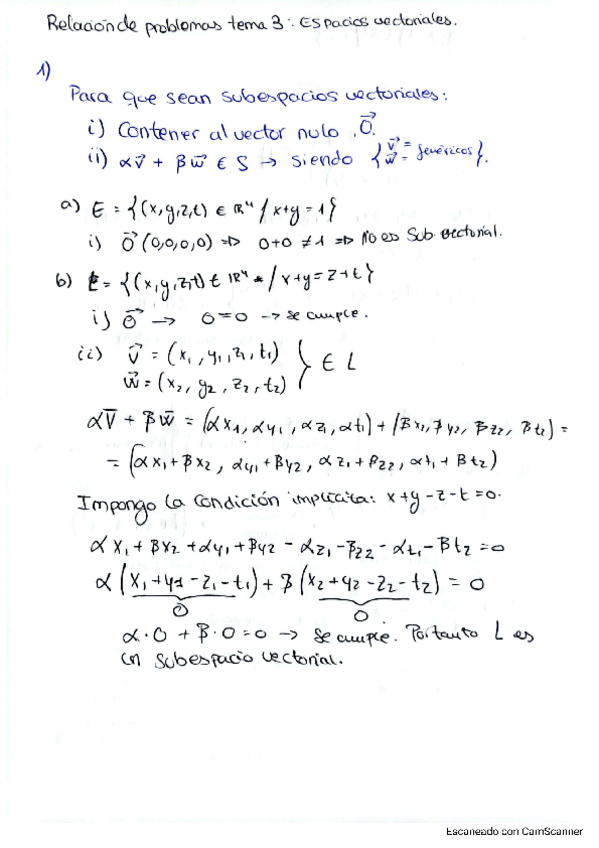 Relación de problemas tema 3: Espacios vectoriales.
1)
Para que sean subespacios vectoriales:
i) Contener al vector nulo, 0⃗.
ii) αv⃗ + βw⃗ ∈ S → siendo {v⃗ = w⃗ = genéricos}.
a) E = {(x,y,z,t) ∈ ℝ⁴ / x+y = 1}
i) 0⃗ (0,0,0,0) => 0+0 ≠ 1 => No es Sub. vectorial.
b) L = {(x,y,z,t) ∈ ℝ⁴ / x+y = z+t}
i) 0⃗ → 0=0 → se cumple.
ii) v⃗ = (x₁, y₁, z₁, t₁)
w⃗ = (x₂, y₂, z₂, t₂) } ∈ L
αv̅ + βw̅ = (αx₁, αy₁, αz₁, αt₁) + (βx₂, βy₂, βz₂, βt₂) =
= (αx₁+βx₂, αy₁+βy₂, αz₁+βz₂, αt₁+βt₂)
Impongo la condición implícita: x+y-z-t=0.
αx₁+βx₂+αy₁+βy₂-αz₁-βz₂-αt₁-βt₂=0
α(x₁+y₁-z₁-t₁)+β(x₂+y₂-z₂-t₂)=0
0 0
α·0+β·0=0 → se cumple. Por tanto L es
un subespacio vectorial.
Escaneado con CamScanner